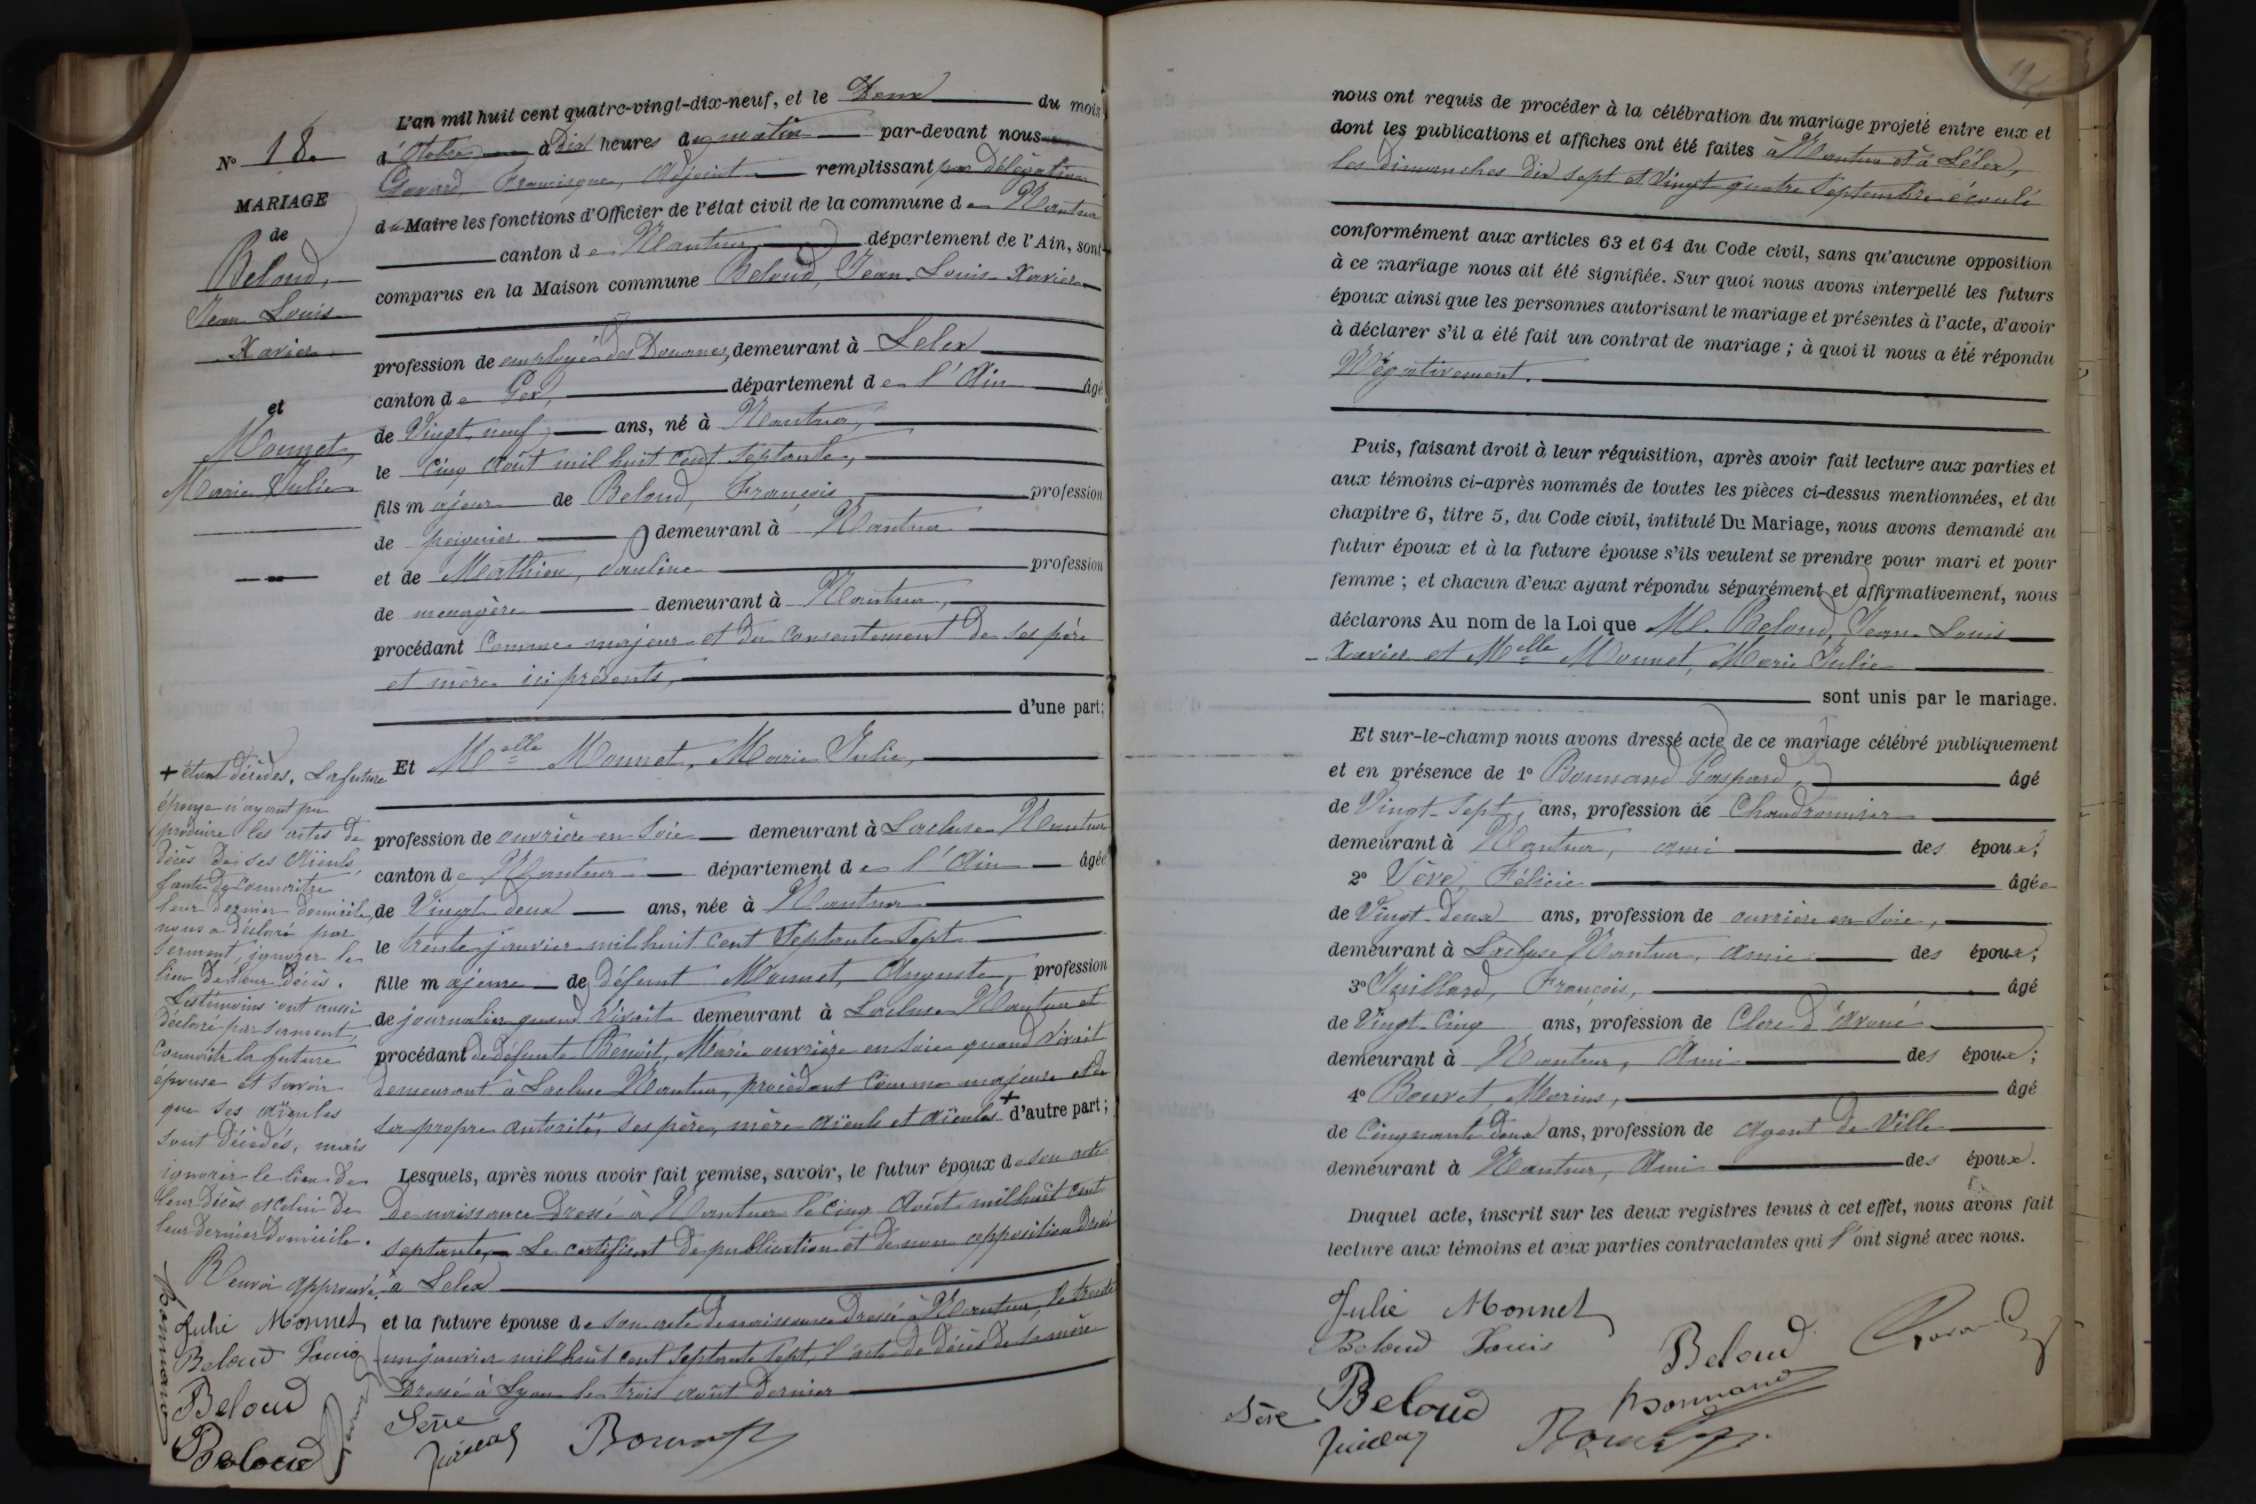 N° 18
MARIAGE
de
Beloud,
Jean Louis
Xavier
et
Monnet,
Marie Julie
L'an mil huit cent quatre-vingt-dix-neuf, et le Deux du mois
d'Octobre à dix heures du matin par-devant nous
Gavard, Francisque, Adjoint remplissant par délégation
du Maire les fonctions d'Officier de l'état civil de la commune de Nantua
canton de Nantua, département de l'Ain, sont
comparus en la Maison commune Beloud, Jean Louis Xavier
profession de employé des Douanes, demeurant à Lelex
canton de Gex, département de l'Ain âgé
de Vingt neuf ans, né à Nantua,
le cinq Août mil huit cent septante,
fils majeur de Beloud, François profession
de peignier demeurant à Nantua
et de Mathieu, Pauline profession
de menagère demeurant à Nantua,
procédant Comme majeur et du consentement de ses père
et mère ici présents,
d'une part;
Et Melle Monnet, Marie Julie,
profession de ouvrière en soie demeurant à Lacluse Nantua
canton de Nantua département de l'Ain âgée
de Vingt deux ans, née à Nantua
le trente janvier mil huit cent Septante Sept
fille majeure de défunt Monnet, Auguste, profession
de journalier quand vivait demeurant à Lacluse Nantua et
procédant de défunte Benoit, Marie ouvrière en soie quand vivait
demeurant à Lacluse Nantua, procédant comme majeure et de
sa propre autorité, ses père, mère aïeuls et aïeules + d'autre part;
+ étant décédés. La future
épouse n'ayant pu
produire les actes de
décès de ses Aïeuls,
faute de connaitre
leur dernier domicile,
nous a déclaré par
serment, ignorer le
lieu de leur décès.
Les témoins ont aussi
déclaré par serment,
connaitre la future
épouse et savoir
que ses aïeules
sont décédés, mais
ignorer le lieu de
leur décès et celui de
leur dernier domicile.
Renvoi approuvé.
Lesquels, après nous avoir fait remise, savoir, le futur époux de son acte
de naissance dressé à Nantua le cinq Août mil huit cent
septante, Le certificat de publication et de non opposition dressé
à Lelex
et la future épouse de son acte de naissance dressé à Nantua, le trente
un janvier mil huit cent septante sept, l'acte de décès de sa mère
dressé à Lyon le trois août dernier
Bonnand
Julie Monnet
Beloud Louis
Beloud
Beloud
Sève
Juillard
Bouvet
nous ont requis de procéder à la célébration du mariage projeté entre eux et
dont les publications et affiches ont été faites à Nantua et à Lélex,
les dimanches dix sept et Vingt quatre Septembre écoulé
conformément aux articles 63 et 64 du Code civil, sans qu'aucune opposition
à ce mariage nous ait été signifiée. Sur quoi nous avons interpellé les futurs
époux ainsi que les personnes autorisant le mariage et présentes à l'acte, d'avoir
à déclarer s'il a été fait un contrat de mariage ; à quoi il nous a été répondu
Négativement.
Puis, faisant droit à leur réquisition, après avoir fait lecture aux parties et
aux témoins ci-après nommés de toutes les pièces ci-dessus mentionnées, et du
chapitre 6, titre 5, du Code civil, intitulé Du Mariage, nous avons demandé au
futur époux et à la future épouse s'ils veulent se prendre pour mari et pour
femme ; et chacun d'eux ayant répondu séparément et affirmativement, nous
déclarons Au nom de la Loi que M. Beloud, Jean Louis
Xavier et Melle Monnet, Marie Julie
sont unis par le mariage.
Et sur-le-champ nous avons dressé acte de ce mariage célébré publiquement
et en présence de 1° Bonnand Gaspard, âgé
de Vingt-Sept ans, profession de Chaudronnier
demeurant à Nantua, ami des époux;
2° Sève, Félicie âgée
de Vingt-Deux ans, profession de ouvrière en soie,
demeurant à Lacluse Nantua, Amie des époux;
3° Juillard, François, âgé
de Vingt-Cinq ans, profession de Clerc d'Avoué
demeurant à Nantua, Ami des époux;
4° Bouvet, Marius, âgé
de Cinquante deux ans, profession de Agent de Ville
demeurant à Nantua, Ami des époux.
Duquel acte, inscrit sur les deux registres tenus à cet effet, nous avons fait
lecture aux témoins et aux parties contractantes qui l'ont signé avec nous.
Julie Monnet
Beloud Louis
Beloud
Gavard
Sève
Beloud
Bonnand
Juillard
Bouvet